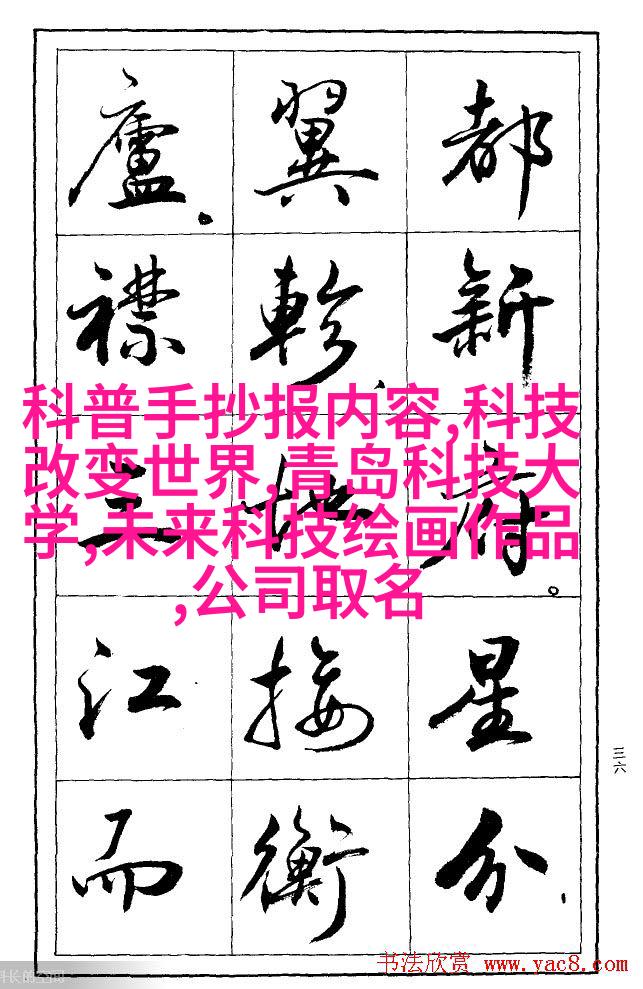 都新府。星分、
翼軫、地接衡
廬。襟三江而
科普手抄报内容,科技
改变世界,青岛科技大
学,未来科技绘画作品
,公司取名
三六
书法欣赏 www.yac8.com
长的空间